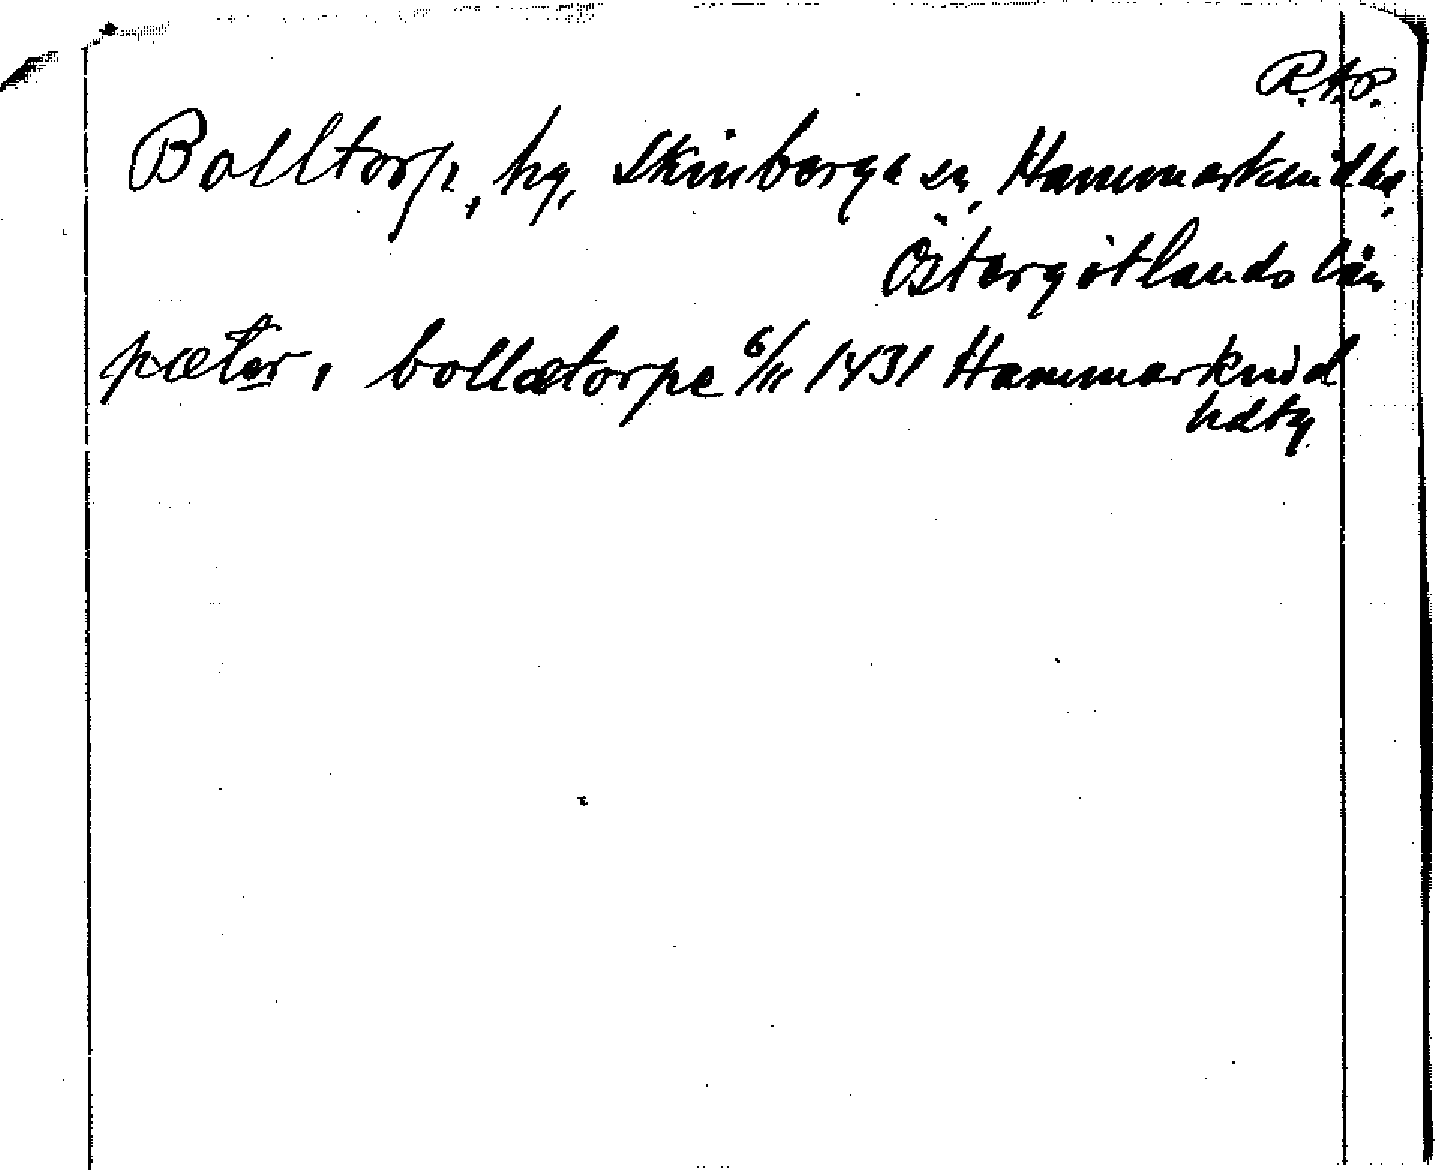 R.A.P.
Bolltorp, hg, Skinberga sn, Hammarkinds hd,
Östergötlands län
pæter, i bollætorpe 6/11 1431 Hammarkind
hdtg